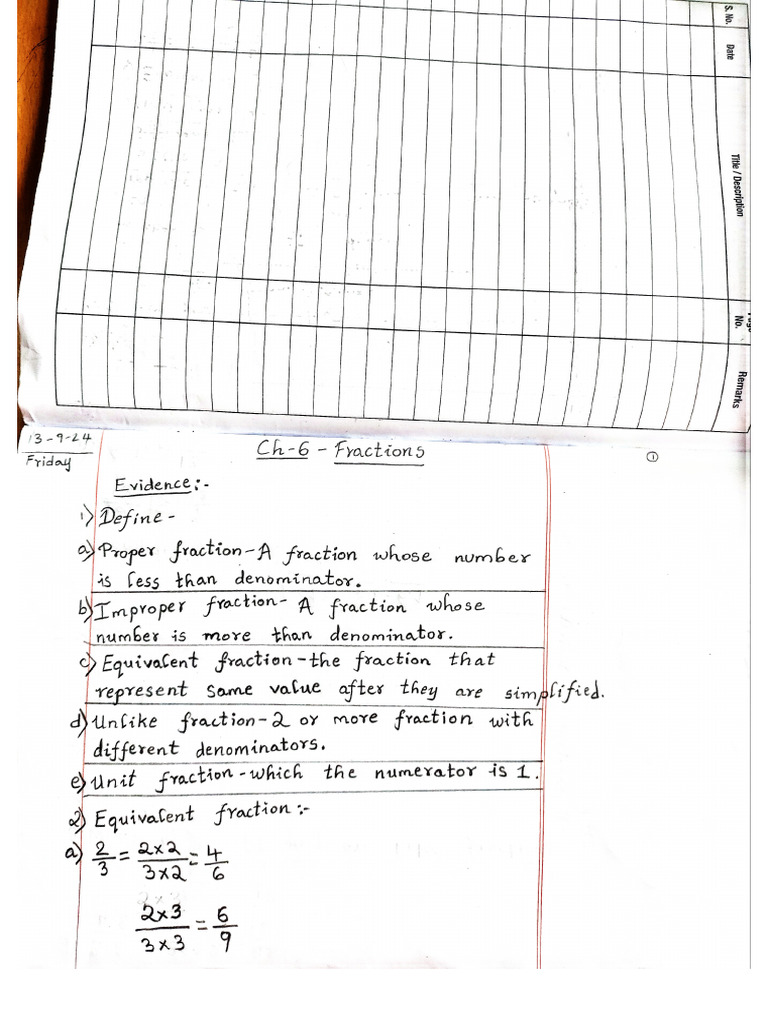 S. No.
Date
Title / Description
Page No.
Remarks
13-9-24
Friday
Ch-6 - Fractions
1
Evidence:-
1) Define -
a) Proper fraction - A fraction whose number
is less than denominator.
b) Improper fraction - A fraction whose
number is more than denominator.
c) Equivalent fraction - the fraction that
represent same value after they are simplified.
d) Unlike fraction - 2 or more fraction with
different denominators.
e) Unit fraction - which the numerator is 1.
2) Equivalent fraction :-
a) 2/3 = 2×2/3×2 = 4/6
2×3/3×3 = 6/9